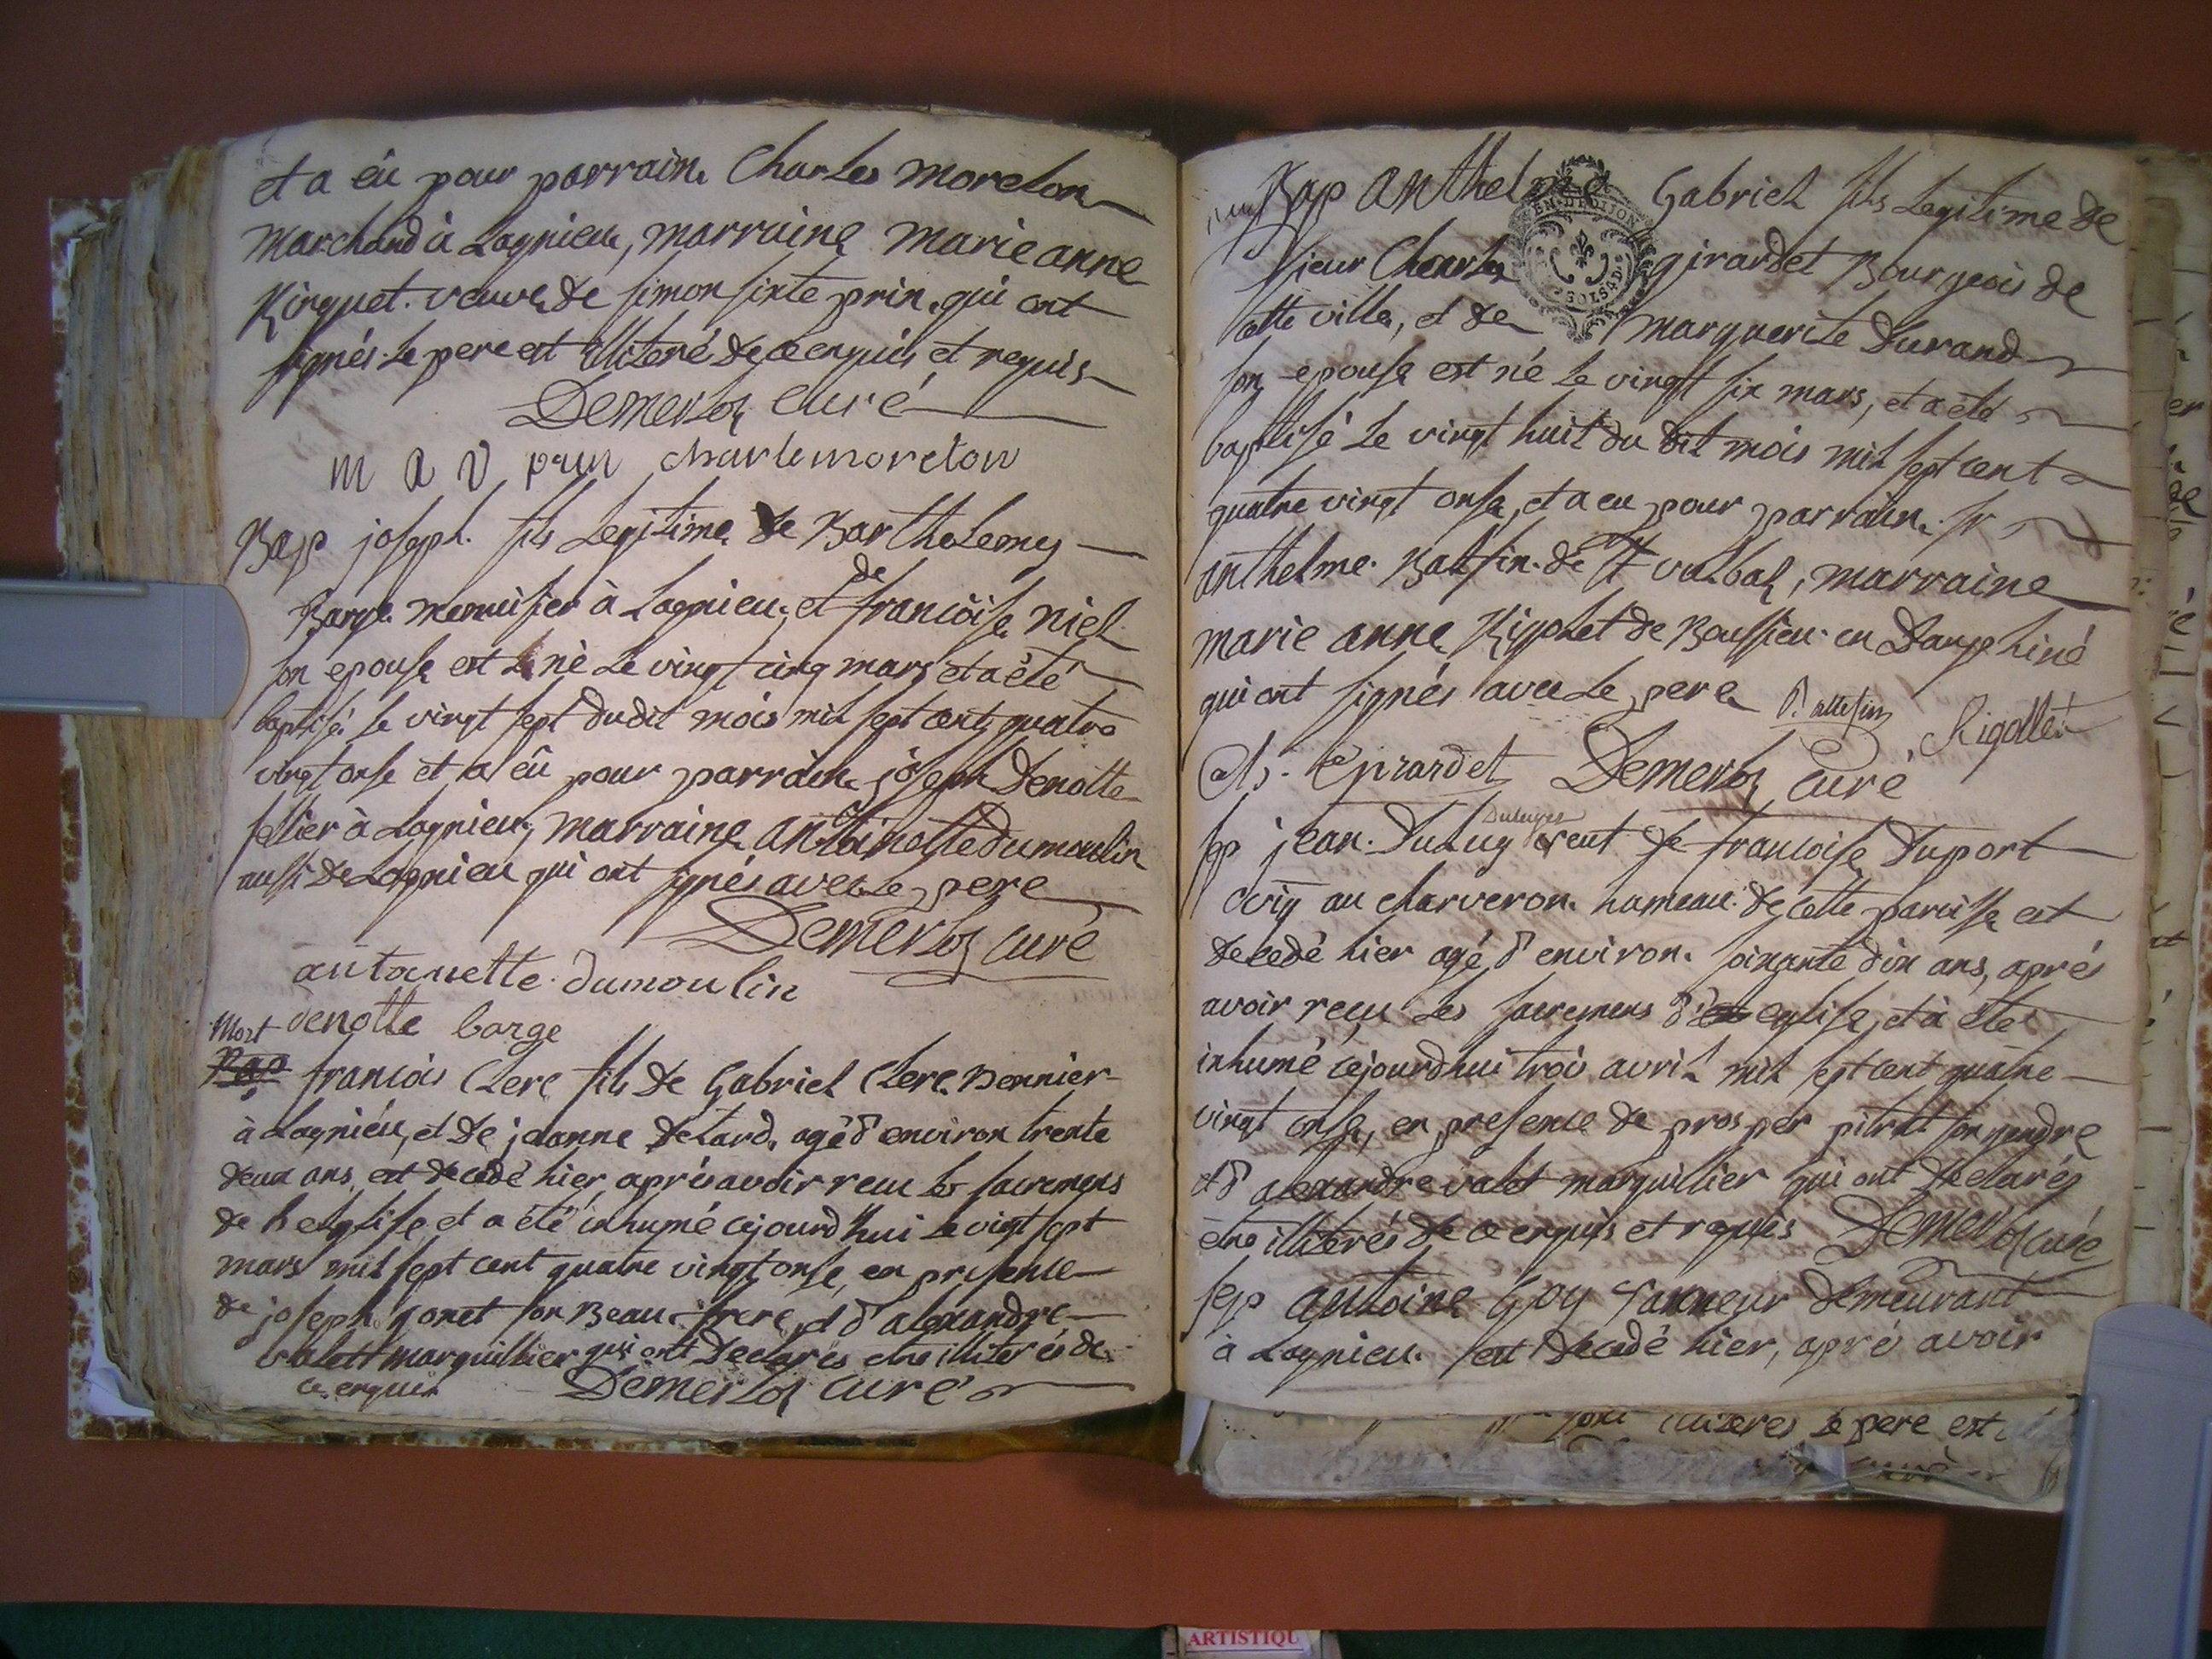 et a êu pour parrain Charles morelon
marchand à Lagnieu, marraine marie anne
veuve de simon sixte prin, qui ont
signés. Le pere est illiteré de ce enquis et requis
Demerloz curé
m a v prin charle morelon
Bap joseph. fils Legitime de Barthelemy
Barge menuisier à Lagnieu, et de francoise niel
son epouse est né Le vingt cinq mars et a été
baptisé le vingt sept dudit mois mil sept cent quatre
vingt onse et a êu pour parrain joseph Denotte
sellier à Lagnieu, marraine antoinette dumoulin
aussi de Lagnieu qui ont signés avec Le pere
Demerloz curé
antanette dumoulin
denotte barge
Mort
Bap francois Clerc fils de Gabriel Clerc
à Lagnieu, et de jeanne agé d'environ trente
deux ans, est decedé hier après avoir recu les sacremens
de l'eglise, et a été inhumé cejourd'hui le vingt sept
mars mil sept cent quatre vingt onse, en presence
de joseph gonet son Beau-frere, et d'alexandre
valett marguillier qui ont declarés etre illiterés de
ce enquis Demerloz curé
Bap anthelme Gabriel fils Legitime de
sieur Charles girardet Bourgeois de
cette ville, et de marguerite Durand
son epouse est né Le vingt six mars, et a été
baptisé Le vingt huit du dit mois mil sept cent
quatre vingt onse, et a eu pour parrain. sr
anthelme. de st , marraine
marie anne Rigolet de Boussieu en Dauphiné
qui ont signés avec Le pere
Rigollet
Ch. Girardet Demerloz curé
sep jean. veuf de francoise Duport
au charveron hameau de cette paroisse est
decedé hier agé d'environ soixante dix ans, après
avoir reçu Les sacremens d' eglise, et à été
inhumé cejourdhui trois avril mil sept cent quatre
vingt onse, en presence de prosper pitrat son gendre
et d'alexandre valet marguillier qui ont declarés
etre illiterés de ce enquis et requis Demerloz curé
sep antoine Goy Tanneur demeurant
à Lagnieu. est decedé hier, apré avoir
illiteres Le pere est
EN. DE DIJON
2 SOLS 4 D.
ARTISTIQU